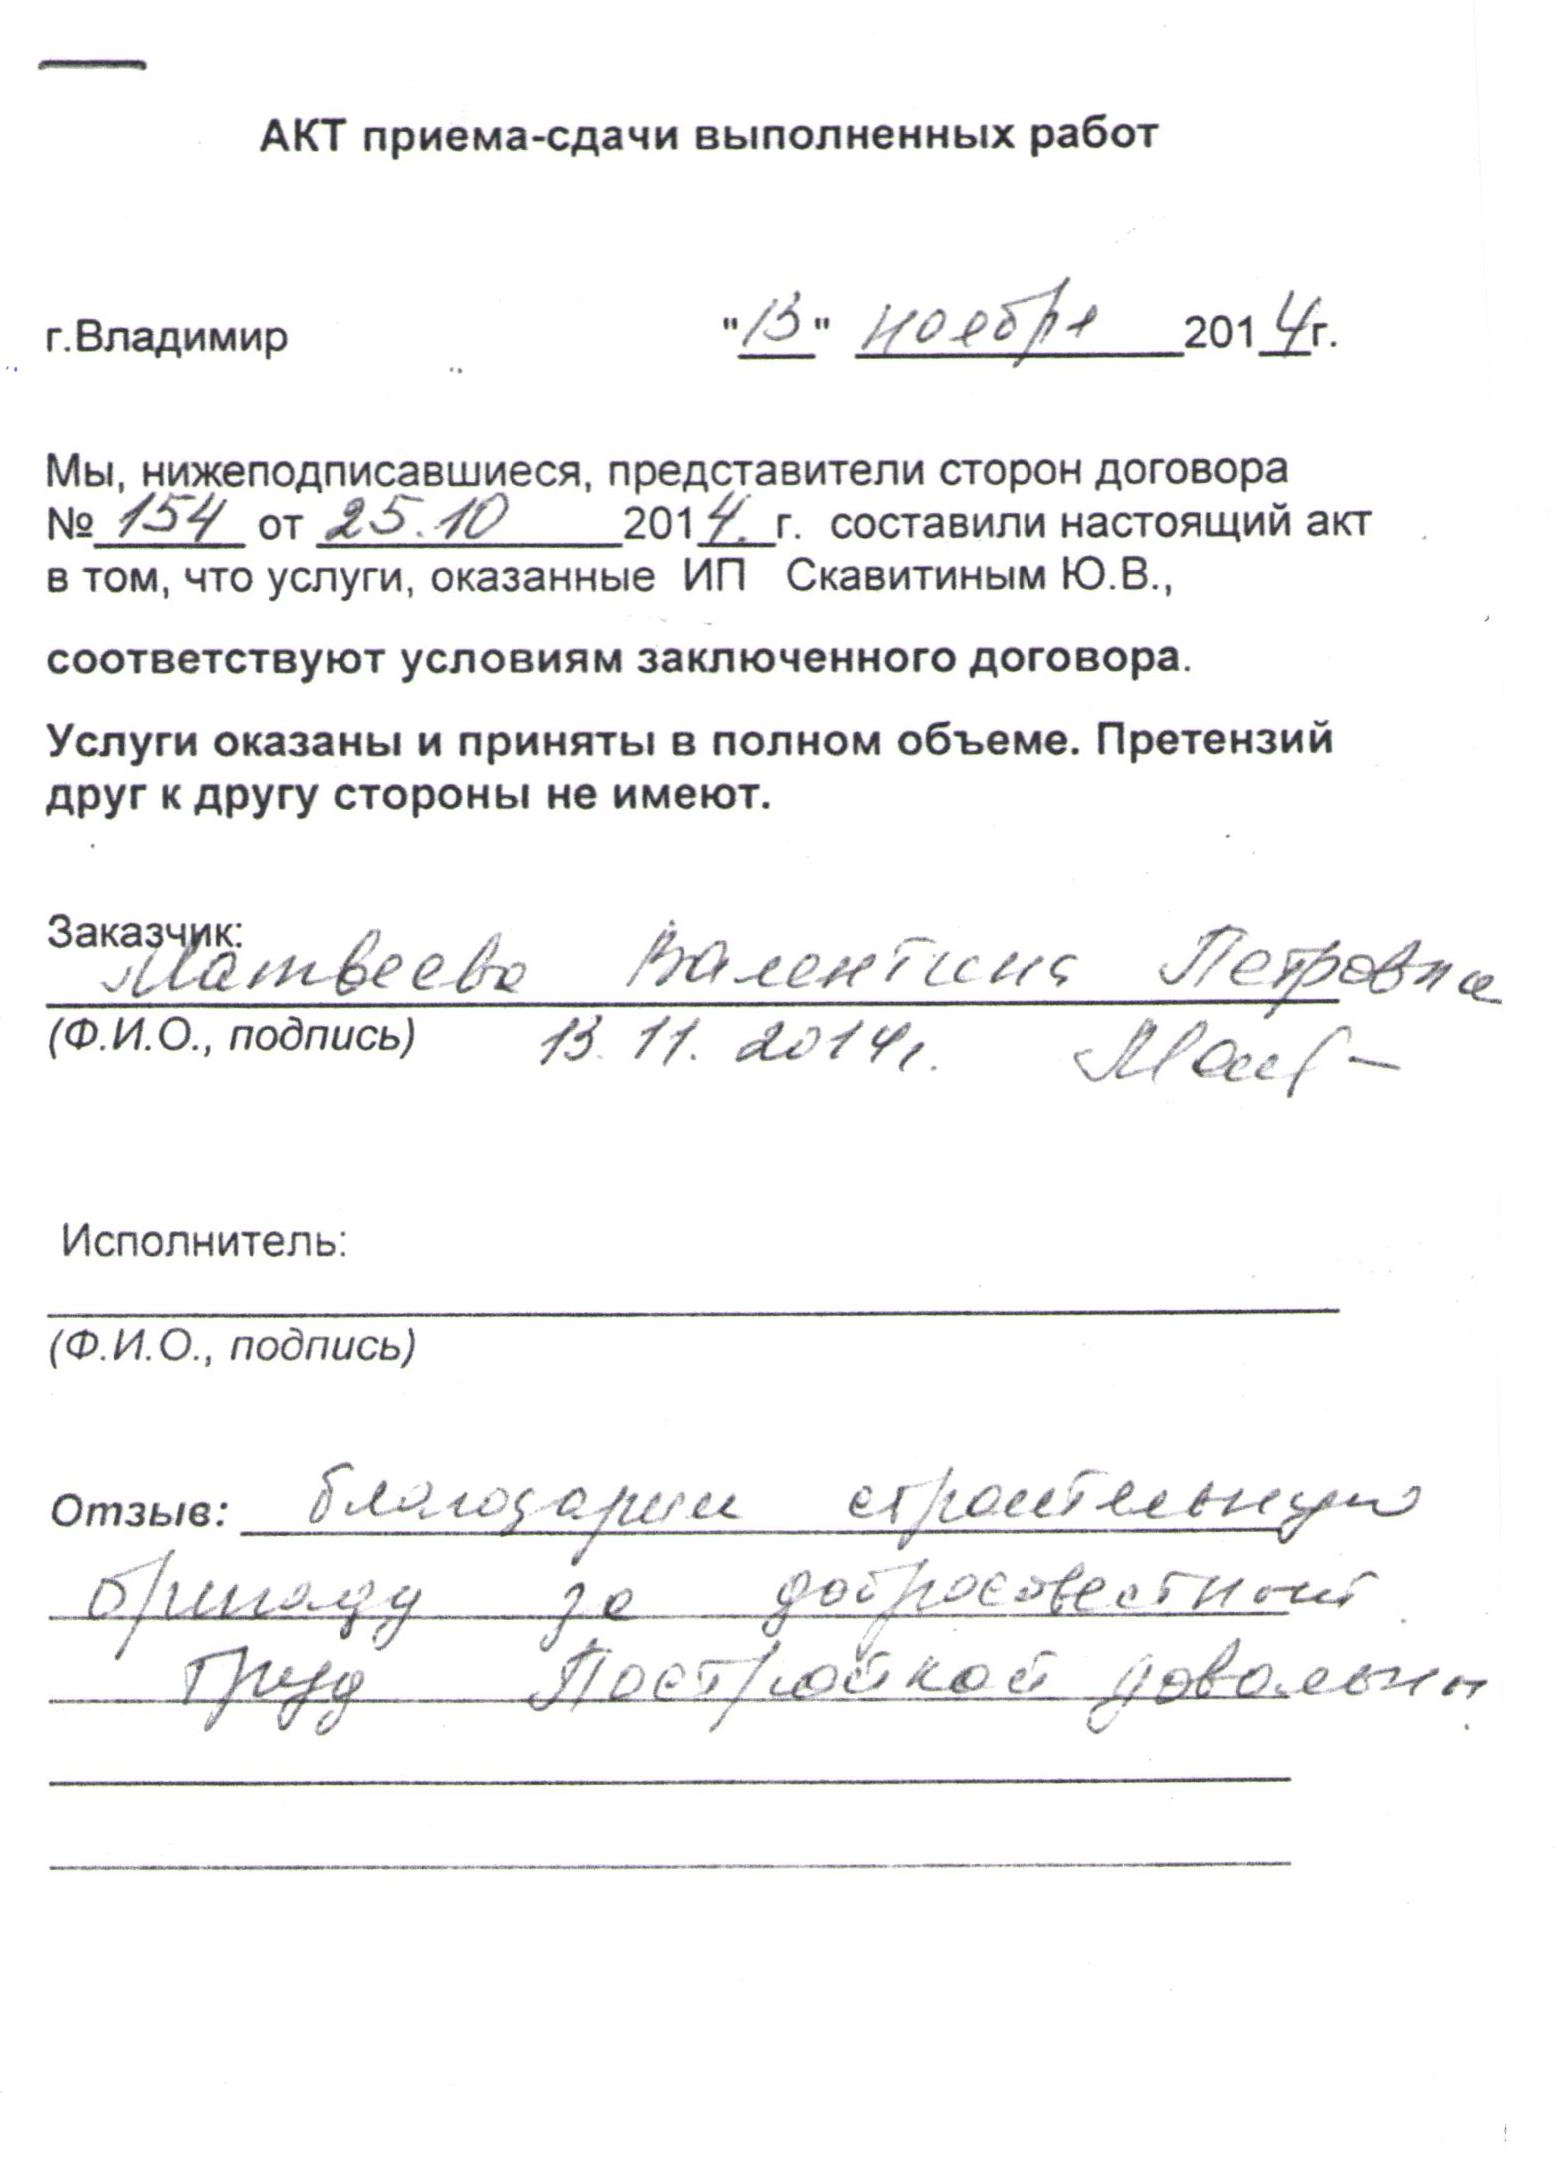 АКТ приема-сдачи выполненных работ
г.Владимир "13" ноября 2014г.
Мы, нижеподписавшиеся, представители сторон договора
№ 154 от 25.10 2014. г. составили настоящий акт
в том, что услуги, оказанные ИП Скавитиным Ю.В.,
соответствуют условиям заключенного договора.
Услуги оказаны и приняты в полном объеме. Претензий
друг к другу стороны не имеют.
Заказчик:
Матвеева Валентина Петровна
(Ф.И.О., подпись) 13.11.2014г.
Исполнитель:
(Ф.И.О., подпись)
Отзыв: благодарим строительную
бригаду за добросовестный
труд Постройкой довольны